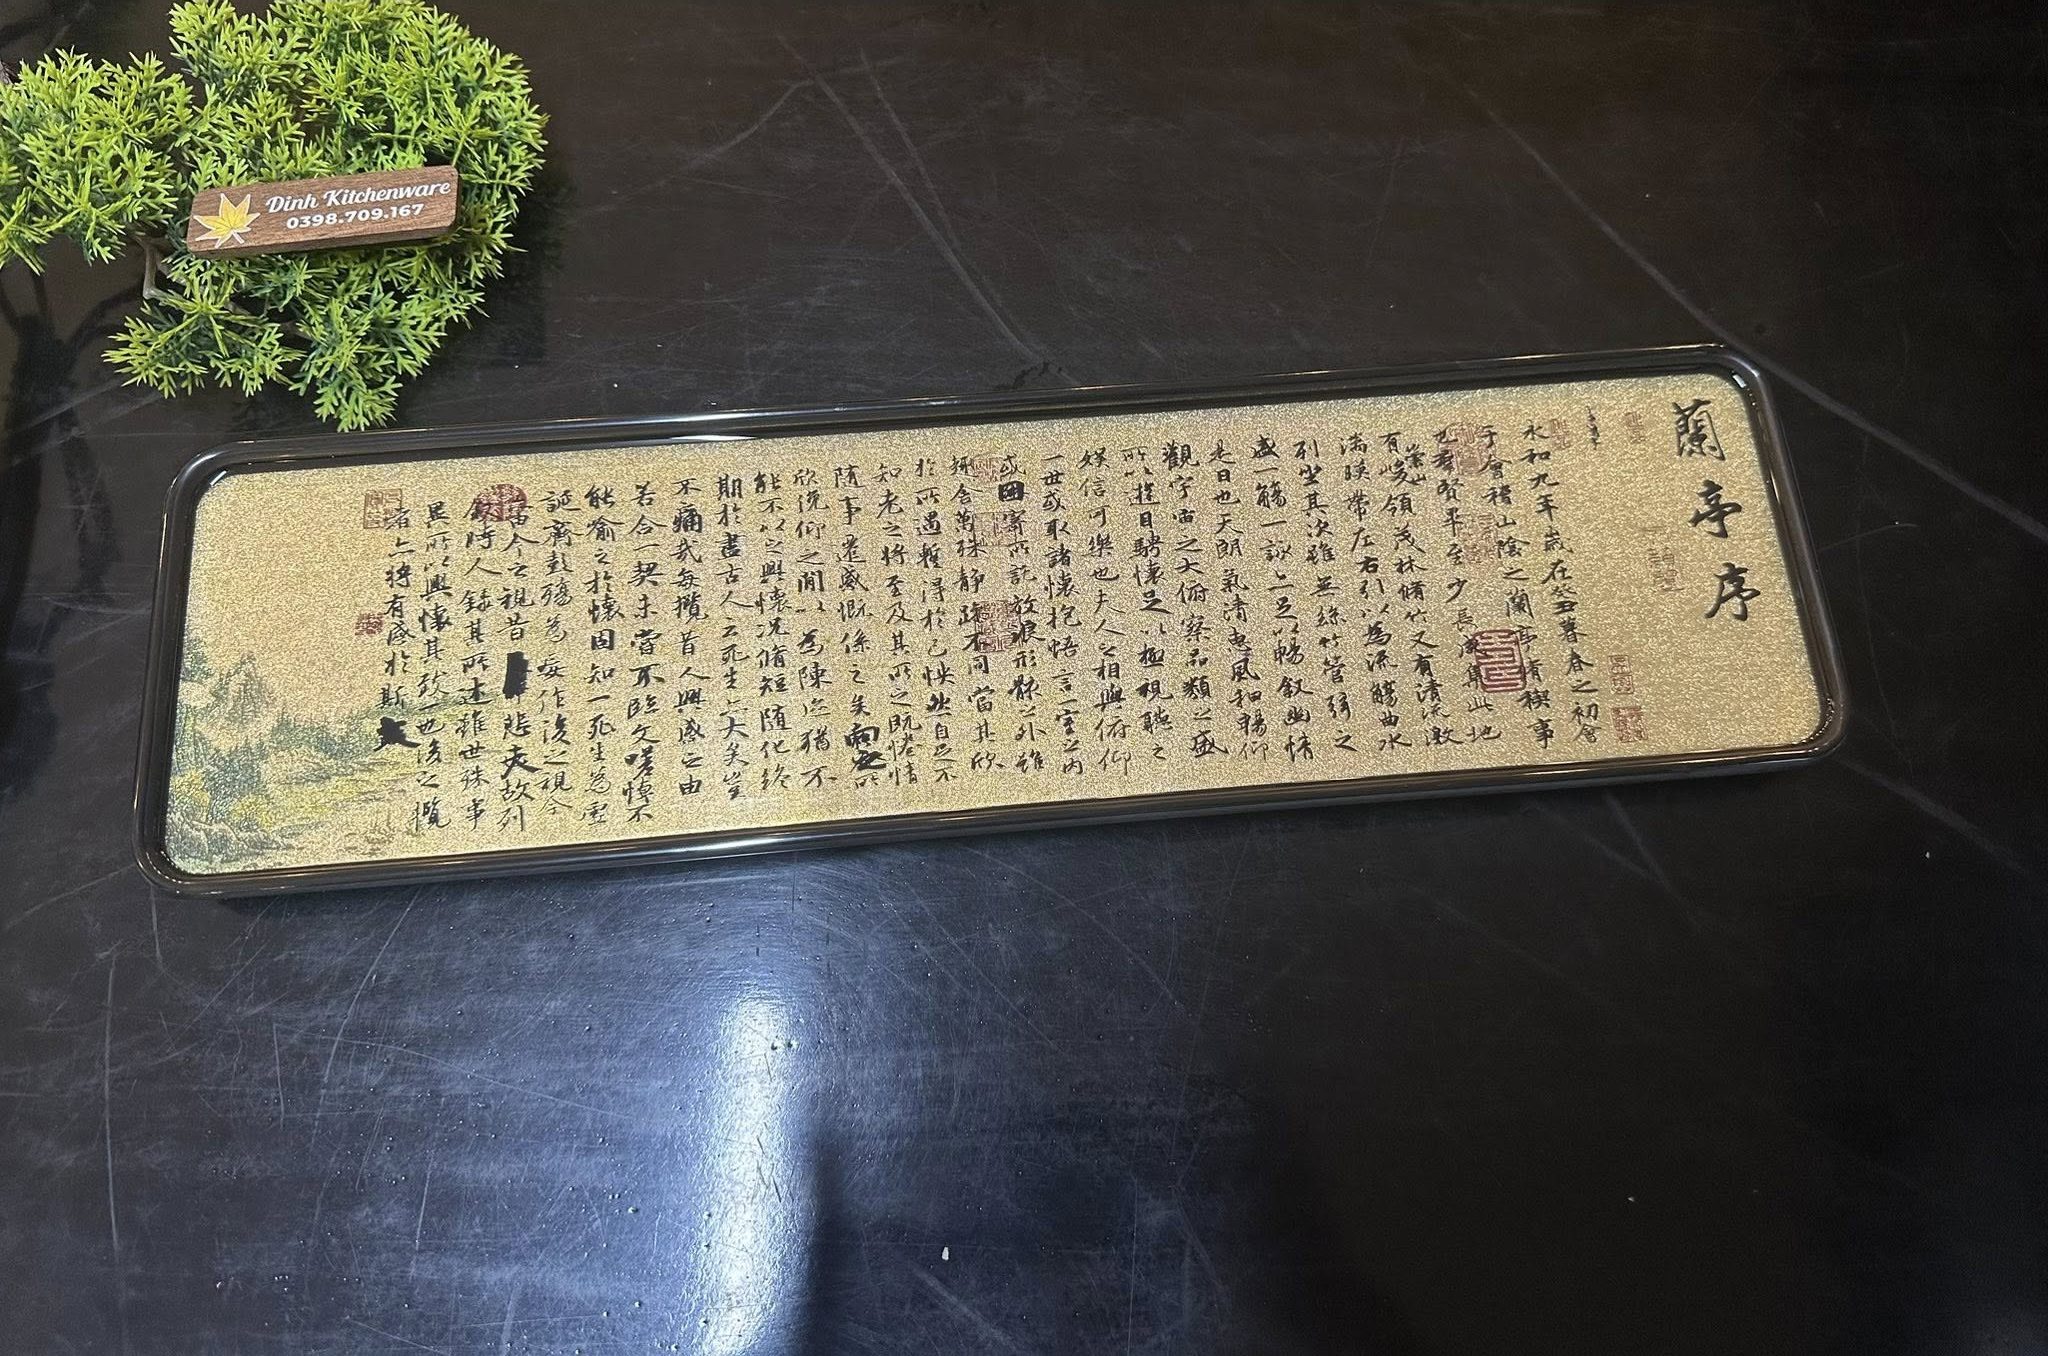 Dinh Kitchenware
0398.709.167
蘭亭序
永和九年歲在癸丑暮春之初會
于會稽山陰之蘭亭脩禊事
也羣賢畢至少長咸集此地
崇山
有峻領茂林脩竹又有清流激
湍暎帶左右引以為流觴曲水
列坐其次雖無絲竹管弦之
盛一觴一詠亦足以暢敘幽情
是日也天朗氣清惠風和暢仰
觀宇宙之大俯察品類之盛
所以遊目騁懷足以極視聽之
娛信可樂也夫人之相與俯仰
一世或取諸懷抱悟言一室之內
或因寄所託放浪形骸之外雖
趣舍萬殊靜躁不同當其欣
於所遇暫得於己怏然自足不
知老之將至及其所之既惓情
隨事遷感慨係之矣向之所
欣俛仰之閒以為陳迹猶不
能不以之興懷況脩短隨化終
期於盡古人云死生亦大矣豈
不痛哉每攬昔人興感之由
若合一契未嘗不臨文嗟悼不
能喻之於懷固知一死生為虛
誕齊彭殤為妄作後之視今
由今之視昔悲夫故列
敘時人錄其所述雖世殊事
異所以興懷其致一也後之攬
者亦將有感於斯文